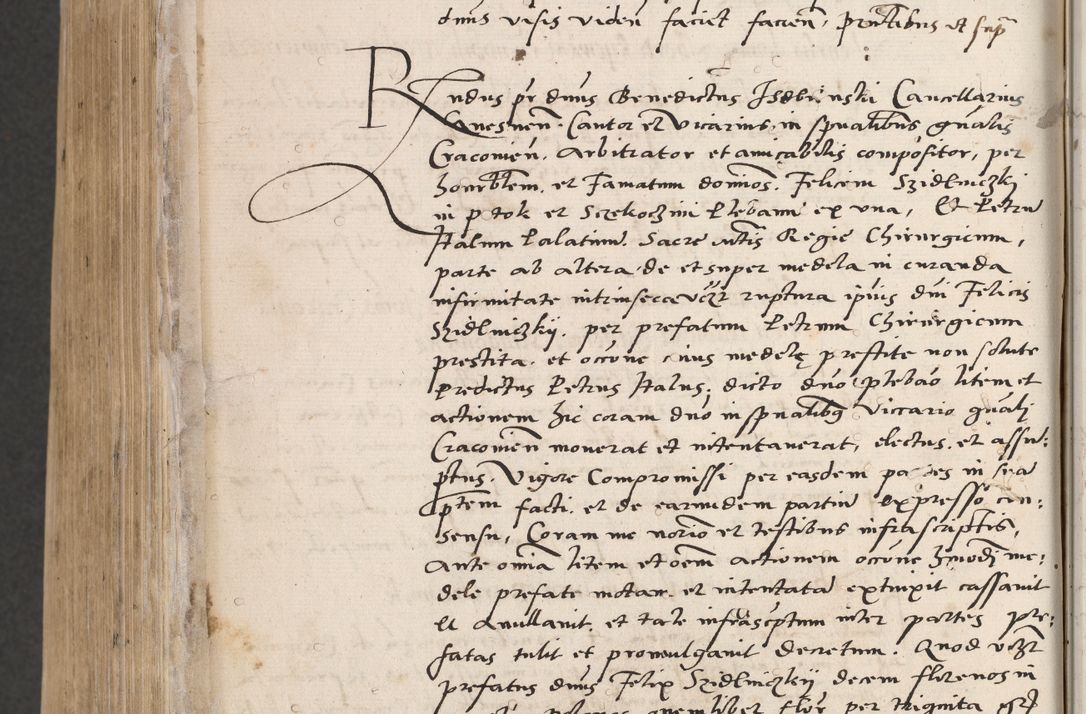 dnus visis viden faciet facien, pntibus et sup
Rndus pr dnus Benedictus Isdbinski Cancellarius
Gnesnen. Cantor et Vicarius in spualibus gnalis
Cracovien. Arbitrator et amicabilis compositor, per
honrblem et Famatum dominos. Felicem Szidlniczki
in p tok et Sczekoczini Plebanu ex una, Et Petru
Italum Palatium. Sacre mtis Regie Chirurgicum,
parte ab altera, de et super medela in curanda
infirmitate intrinseca vczt ruptura ipius dni Felicis
Szidlniczkij. per prefatum Petrum Chirurgicum
prestita. et occone cuius medele prestite non solute
predictus Petrus Italus, dicto dno plebao litem et
actionem hic coram dno in spualibus Viccario gnali
Cracovien moverat et intentaverat, electus et assu:
ptus. Vigore Compromissi per easdem partes in scri
ptem facti. et de earundem partiu expresso con:
sensu, Coram me norio et testibus infrascriptis,
Ante omia litem et oem actionem occone hmodi me:
dele prefate motam et intentata extinxit cassavit
et Anullavit, et tale infrascptum inter partes pre:
fatas tulit et promulgavit decretum. Quod vczt
prefatus dnus Felix Szidlniczkij decem florenos in
quemlibet flor per triginta